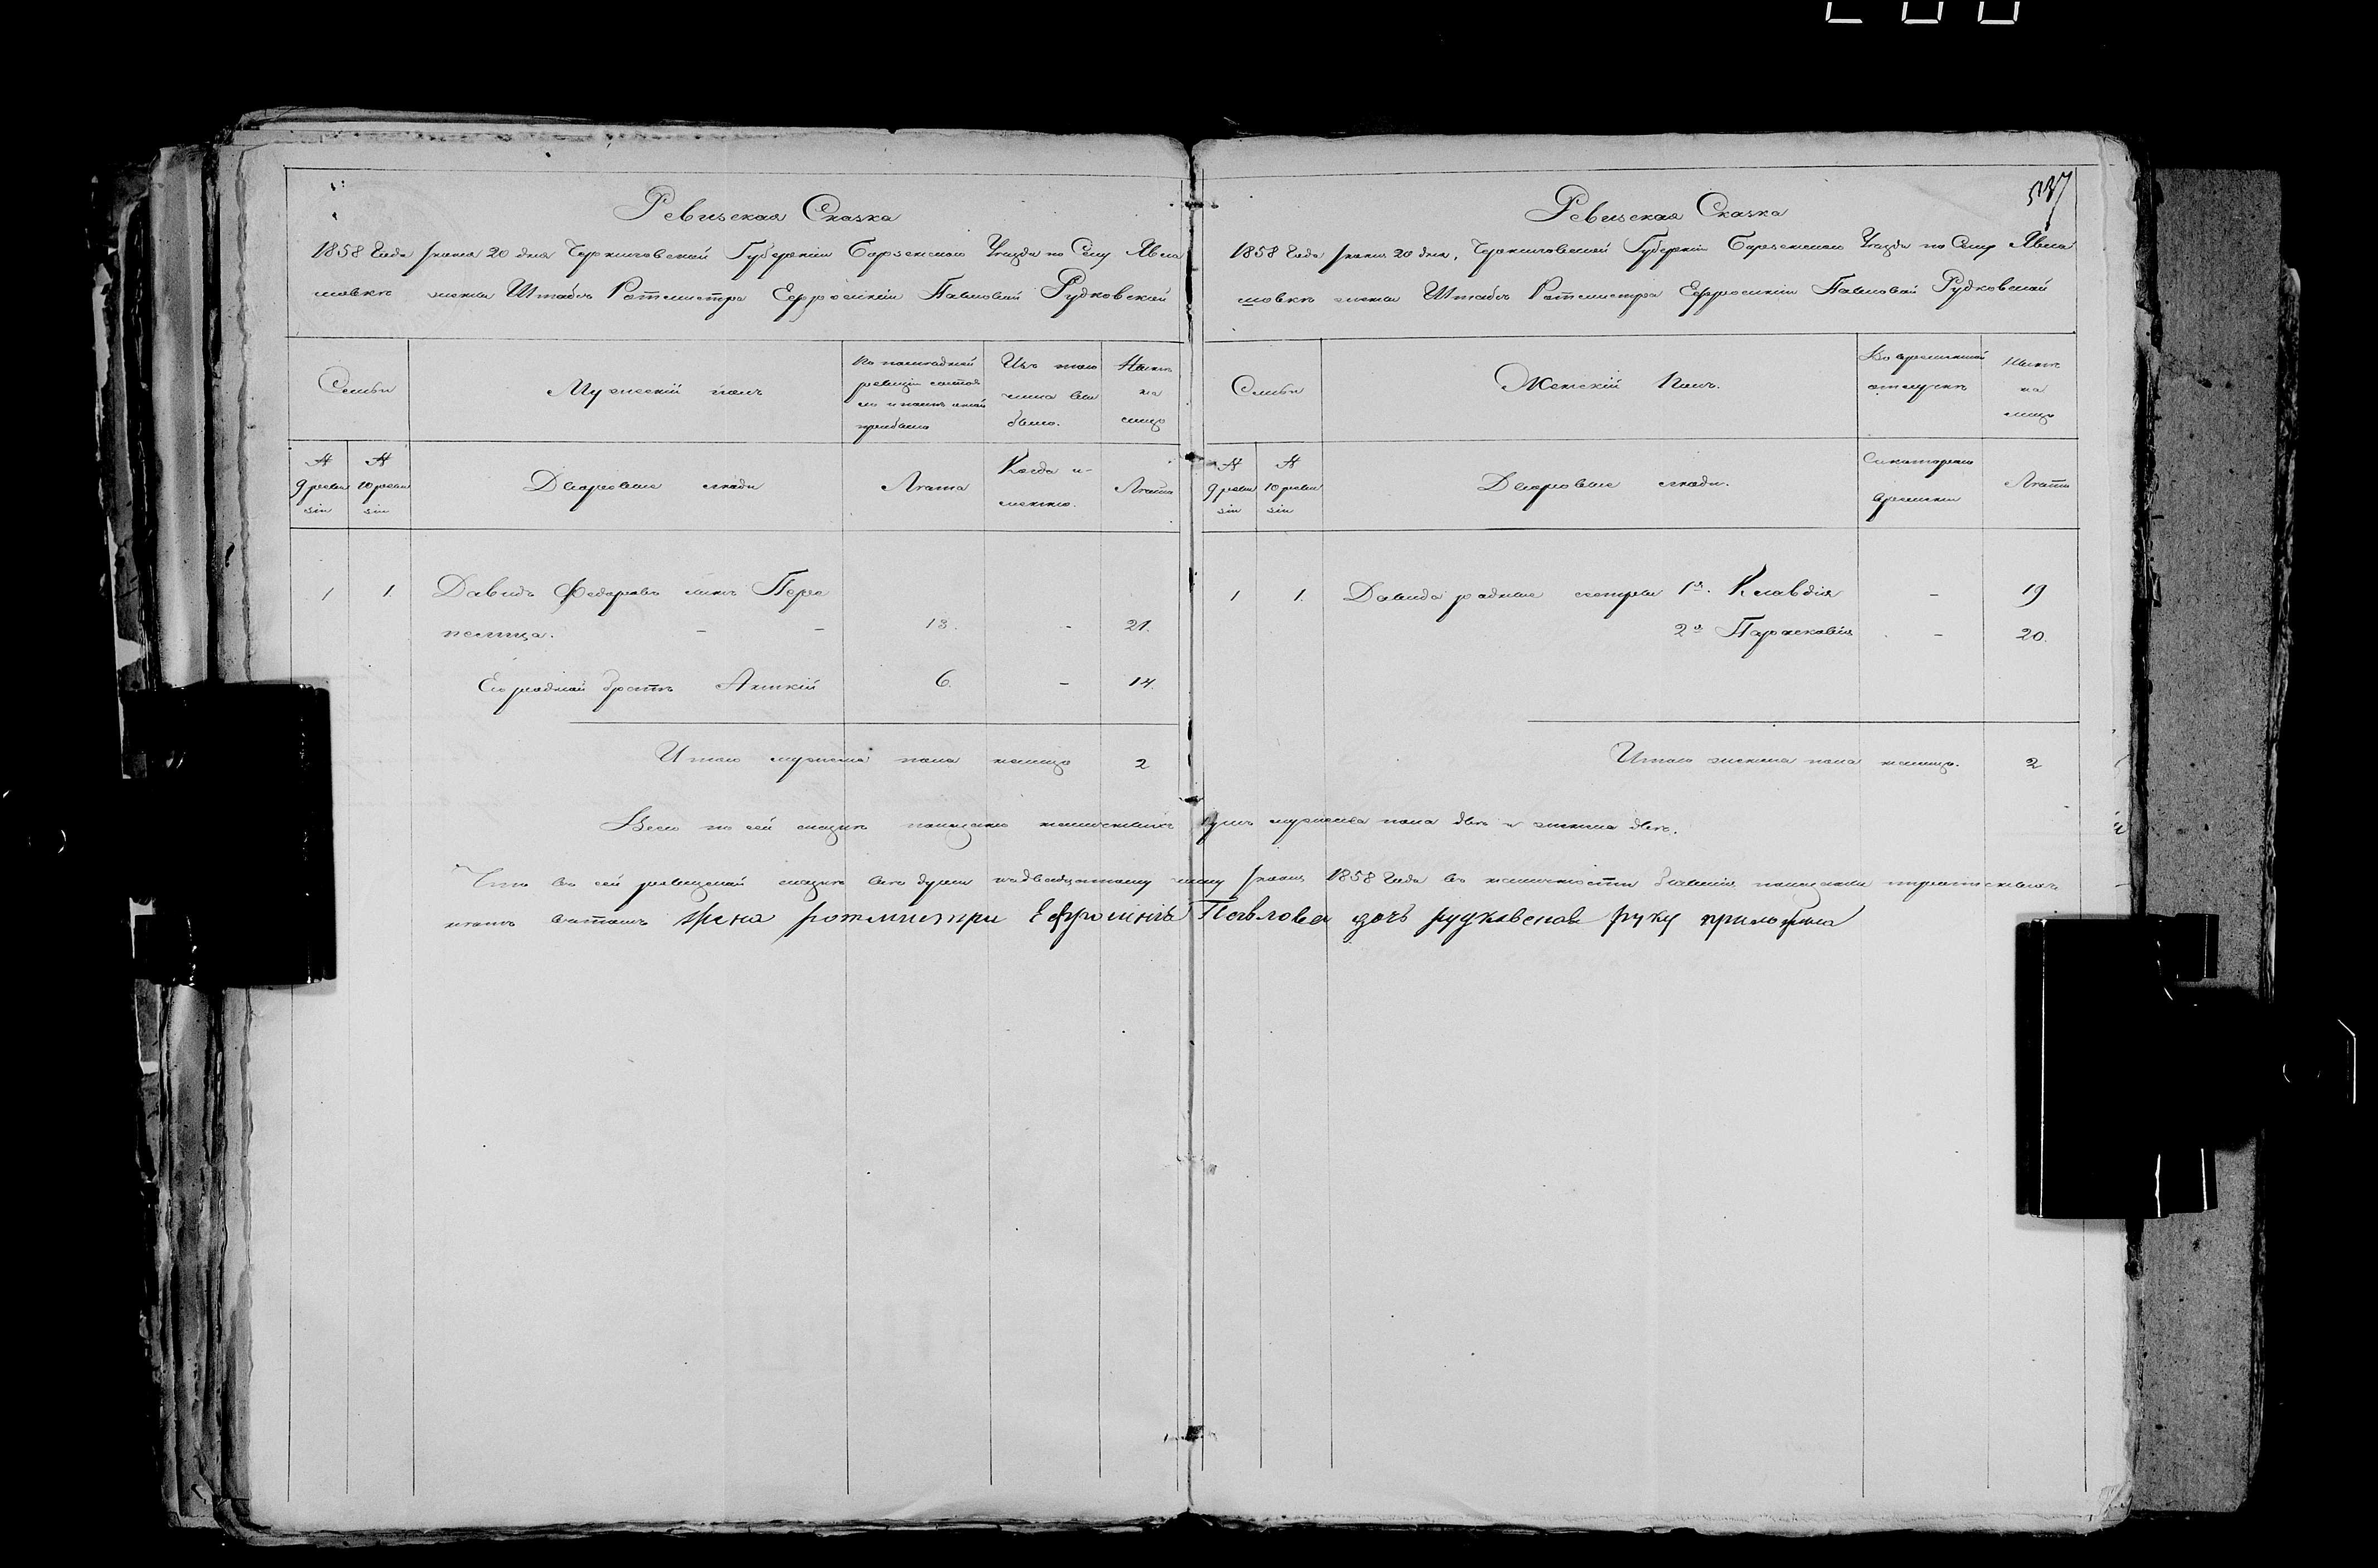 Ревизская Сказка
1858 Года Июня 20 дня Черниговской Губернiи Борзенскаго Уезда по Селу
жены Штабъ Ротмистра Ефросинiи Павловой Рудковской
Семьи
Мужескiй полъ
По последней ревизiи состояло и после оной прибыло
Изъ того числа выбыло.
Ныне на лицо
№ 9 ревизiи
№ 10 ревизiи
Дворовые люди
Лета
Когда именно.
Лета
1 1. Давидъ Федоровъ сынъ Пере
пелица. - - 13. - 21.
Его родной братъ 6. - 14.
Итого мужеска пола налицо 2
537
Ревизская Сказка
1858 Года Июня 20 дня, Черниговской Губернiи Борзенскаго Уезда по Селу
жены Штабъ Ротмистра Ефросинiи Павловой Рудковской
Семьи
Женскiй Полъ.
Во временной отлучке
Ныне на лицо
№ 9 ревизiи
№ 10 ревизiи
Дворовые люди.
Съ котораго времени
Лета
1 1. Давида родные сестры 1я. Клавдiя - 19
2я Парасковiя - 20.
Итого женска пола налицо. 2
Всего по сей сказке показано наличныхъ душъ мужеска пола две и женска две.
Что въ сей ревизской сказке все души къ двадцатому числу Июня 1858 Года въ наличности бывшiя показаны
жена ротмистра Ефросинiя Павлова дочь рудковская руку приложила